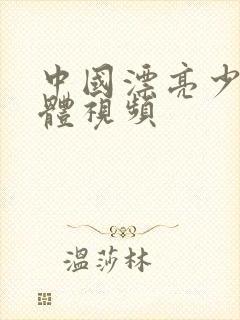 中國漂亮少
體視頻
溫莎林